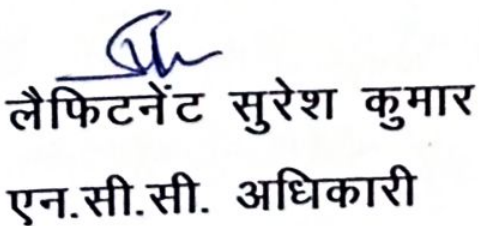 लैफिटनेंट सुरेश कुमार
एन.सी.सी. अधिकारी